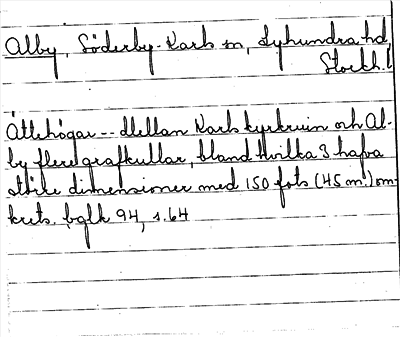 Alby, Söderby-Karls sn, Lyhundra hd
Stockh. l
Ättehögar -- Mellan Karls kyrkruin och Al-
by flere grafkullar, bland hvilka 3 hafva
större dimensioner med 150 fots (45 m.) om-
krets. bglk 94, s. 64